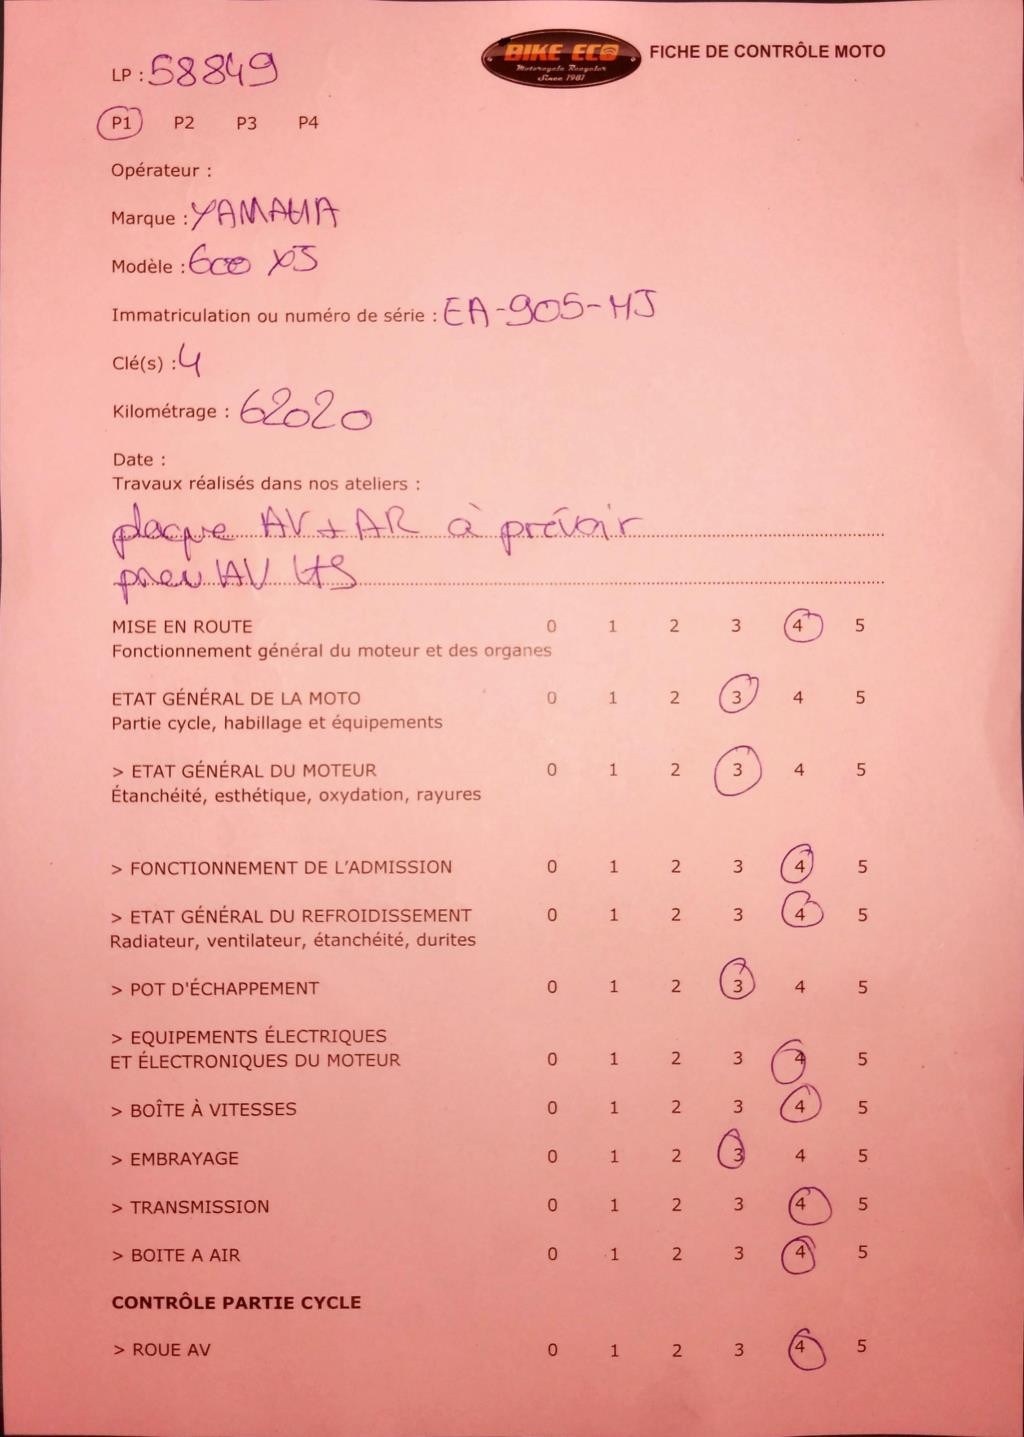 BIKE ECO
Motorcycle Recycler
Since 1981
FICHE DE CONTRÔLE MOTO
LP : 58849
P1 P2 P3 P4
Opérateur :
Marque : YAMAHA
Modèle : 600 XJ
Immatriculation ou numéro de série : EA-905-HJ
Clé(s) : 4
Kilométrage : 62020
Date :
Travaux réalisés dans nos ateliers :
plaque AV + AR à prévoir
pneu AV HS
MISE EN ROUTE 0 1 2 3 4 5
Fonctionnement général du moteur et des organes
ETAT GÉNÉRAL DE LA MOTO 0 1 2 3 4 5
Partie cycle, habillage et équipements
> ETAT GÉNÉRAL DU MOTEUR 0 1 2 3 4 5
Étanchéité, esthétique, oxydation, rayures
> FONCTIONNEMENT DE L'ADMISSION 0 1 2 3 4 5
> ETAT GÉNÉRAL DU REFROIDISSEMENT 0 1 2 3 4 5
Radiateur, ventilateur, étanchéité, durites
> POT D'ÉCHAPPEMENT 0 1 2 3 4 5
> EQUIPEMENTS ÉLECTRIQUES
ET ÉLECTRONIQUES DU MOTEUR 0 1 2 3 4 5
> BOÎTE À VITESSES 0 1 2 3 4 5
> EMBRAYAGE 0 1 2 3 4 5
> TRANSMISSION 0 1 2 3 4 5
> BOITE A AIR 0 1 2 3 4 5
CONTRÔLE PARTIE CYCLE
> ROUE AV 0 1 2 3 4 5